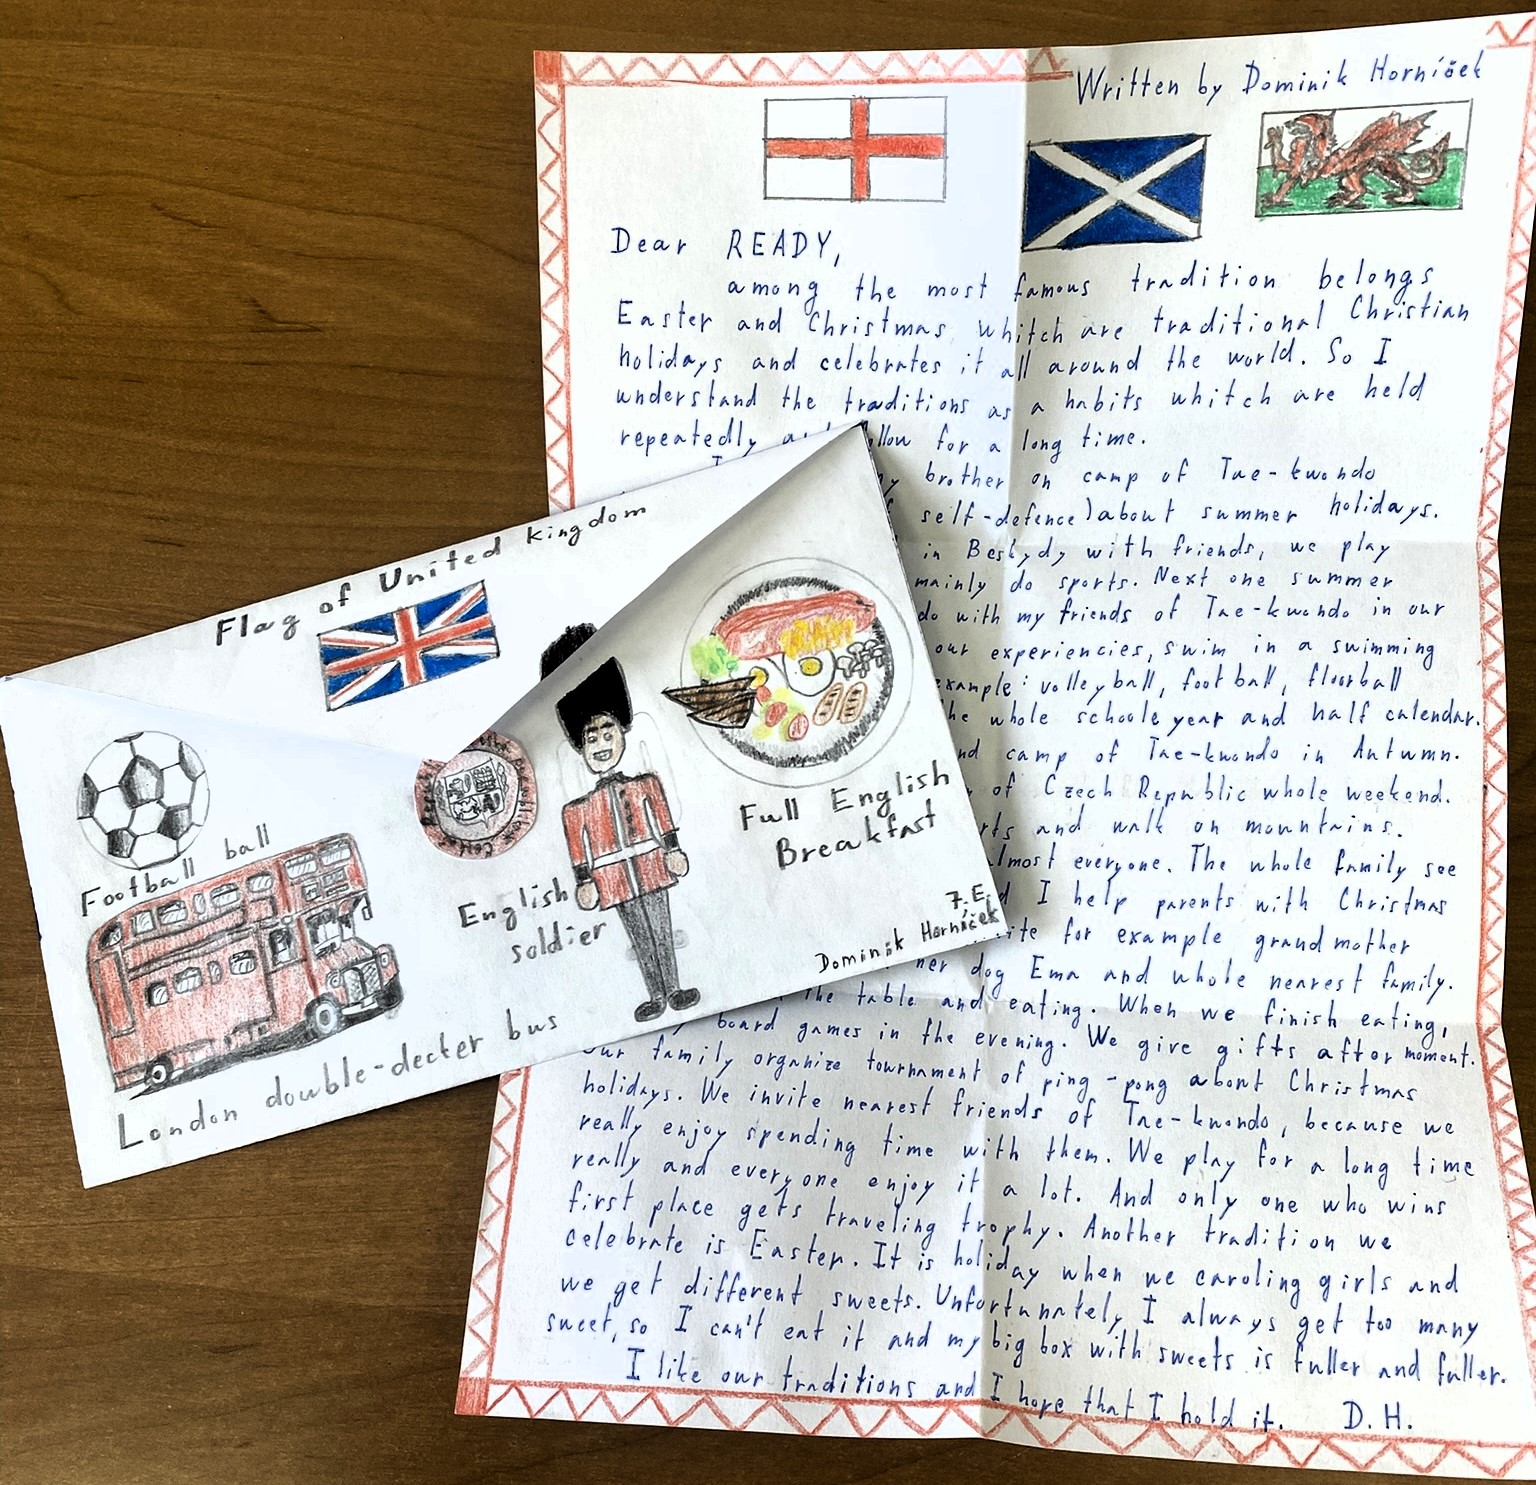 Written by Dominik Horníček
Dear READY,
among the most famous tradition belongs
Easter and Christmas whitch are traditional Christian
holidays and celebrates it all around the world. So I
understand the traditions as a habits whitch are held
repeatedly for a long time.
I brother on camp of Tae-kwondo
self-defence) about summer holidays.
in Beskydy with friends, we play
mainly do sports. Next one summer
do with my friends of Tae-kwondo in our
our experiencies, swim in a swimming
example: volleyball, football, floorball
the whole schoole year and half calendar.
camp of Tae-kwondo in Autumn.
of Czech Republic whole weekend.
and walk on mountains.
almost everyone. The whole family see
I help parents with Christmas
for example grandmother
her dog Ema and whole nearest family.
the table and eating. When we finish eating,
board games in the evening. We give gifts after moment.
Our family organize tournament of ping-pong about Christmas
holidays. We invite nearest friends of Tae-kwondo, because we
really enjoy spending time with them. We play for a long time
really and everyone enjoy it a lot. And only one who wins
first place gets traveling trophy. Another tradition we
celebrate is Easter. It is holiday when we caroling girls and
we get different sweets. Unfortunately, I always get too many
sweet, so I can't eat it and my big box with sweets is fuller and fuller.
I like our traditions and I hope that I hold it. D.H.
Flag of United kingdom
Football ball
London douwble-decker bus
English
soldier
Full English
Breakfast
7.E.
Dominik Horníček